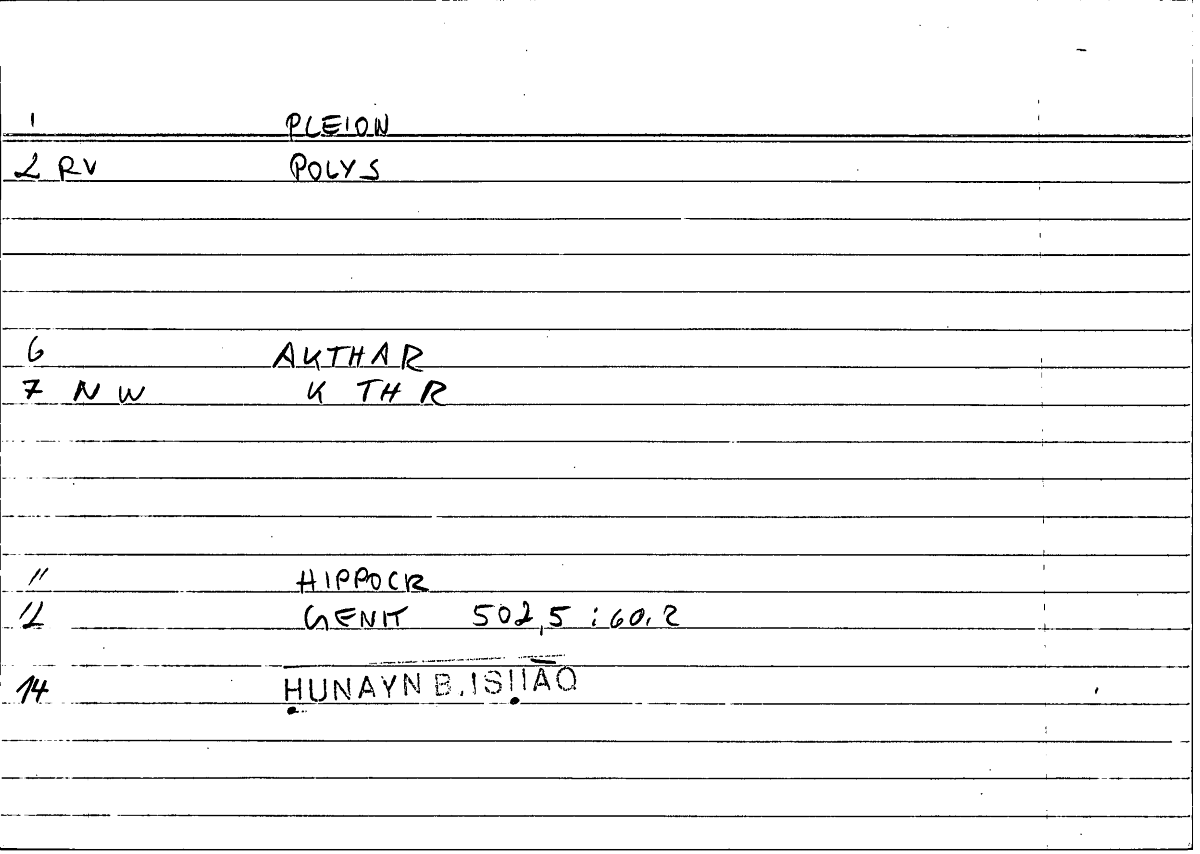 1 PLEION
2 RV POLYS
6 AKTHAR
7 N W K TH R
11 HIPPOCR
12 GENIT 502,5 : 60.2
14 ḤUNAYN B. ISḤĀQ